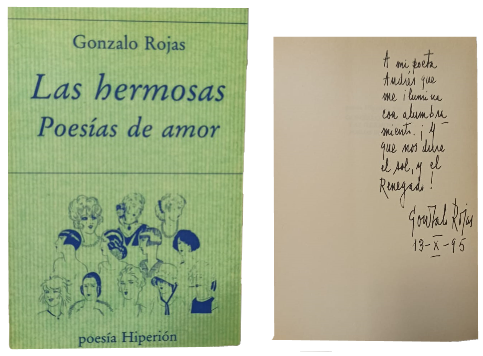 Gonzalo Rojas
Las hermosas
Poesías de amor
poesía Hiperión
A mi poeta
Andrés que
me ilumina
con alumbra
miento. ¡Y
que nos dure
el sol, y el
Renegado!
Gonzalo Rojas
13-X-95